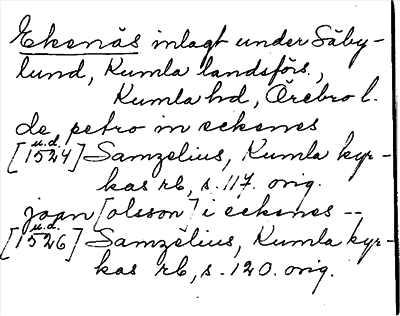 Ekenäs inlagt under Säby-
lund, Kumla landsförs.,
Kumla hd, Örebro l.
de petro in eekenes
[u.d. 1524] Samzelius, Kumla kyr-
kas rb, s. 117. orig.
joan [olsson] i eekenes --
[u.d. 1526] Samzelius, Kumla kyr-
kas rb, s. 120. orig.